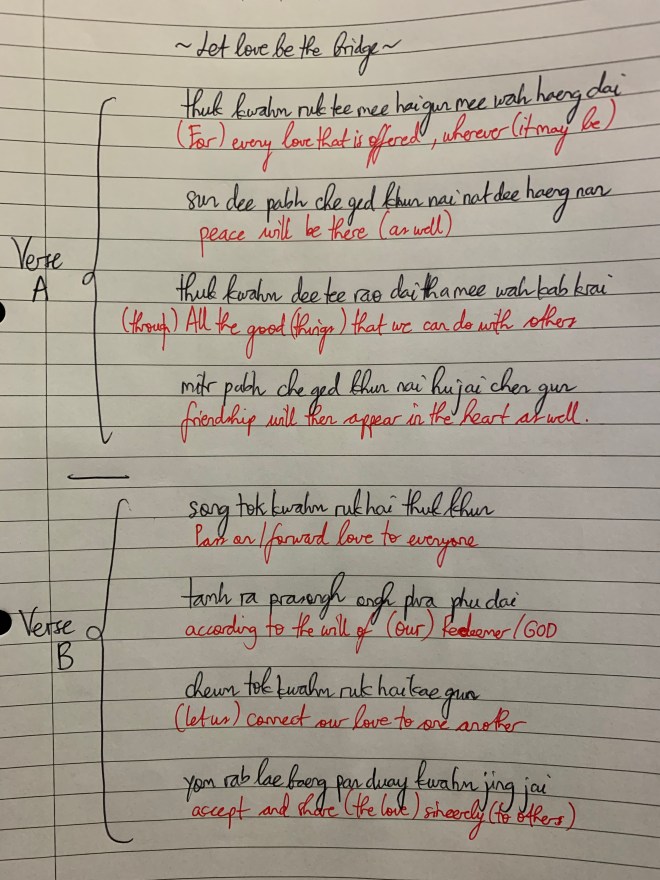 ~Let love be the bridge~
Verse A
thuk kwahm ruk tee mee hai gun mee wah haeng dai
(For) every love that is offered, wherever (it may be)
sun dee pabh che ged khun nai nat dee haeng nan
peace will be there (as well)
thuk kwahm dee tee rao dai tha mee wah kab krai
(through) All the good (things) that we can do with others
mitr pabh che ged khun nai hujai chen gun
friendship will then appear in the heart as well.
Verse B
song tok kwahm ruk hai thuk khun
Pass on/forward love to everyone
tamh ra prasongh ongh phra phu dai
according to the will of (our) Redeemer/GOD
cheum tok kwahm ruk hai kae gun
(let us) connect our love to one another
yom rab lae baeng pan duay kwahm jing jai
accept and share (the love) sincerely (to others)